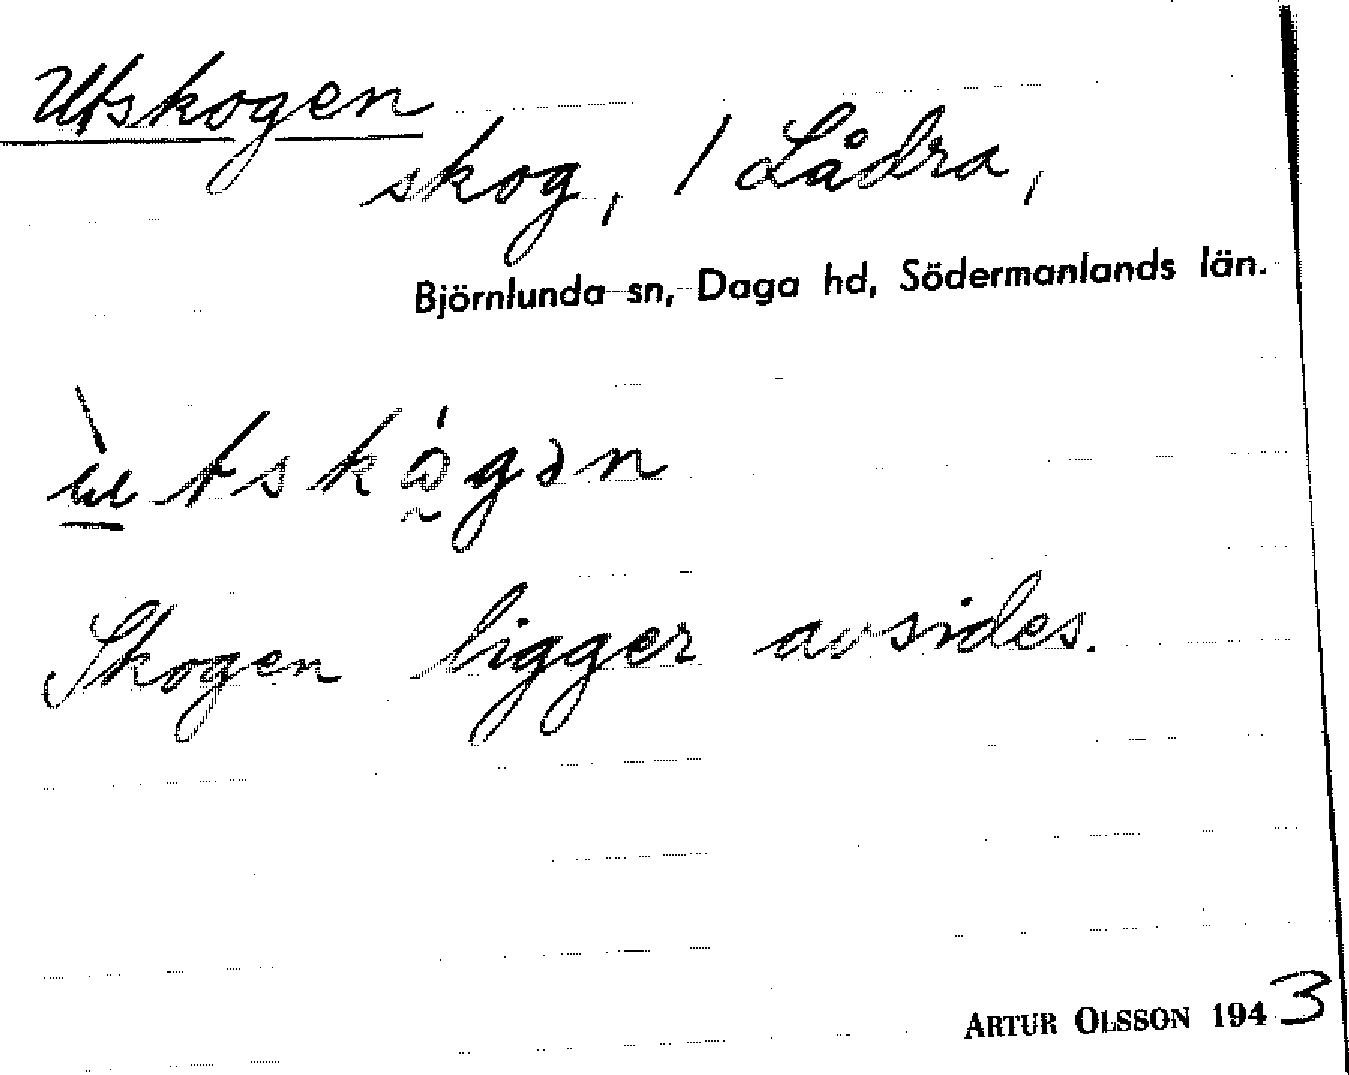 Utskogen
skog, / Lådra,
Björnlunda sn, Daga hd, Södermanlands län.
Skogen ligger avsides.
ARTUR OLSSON 1943